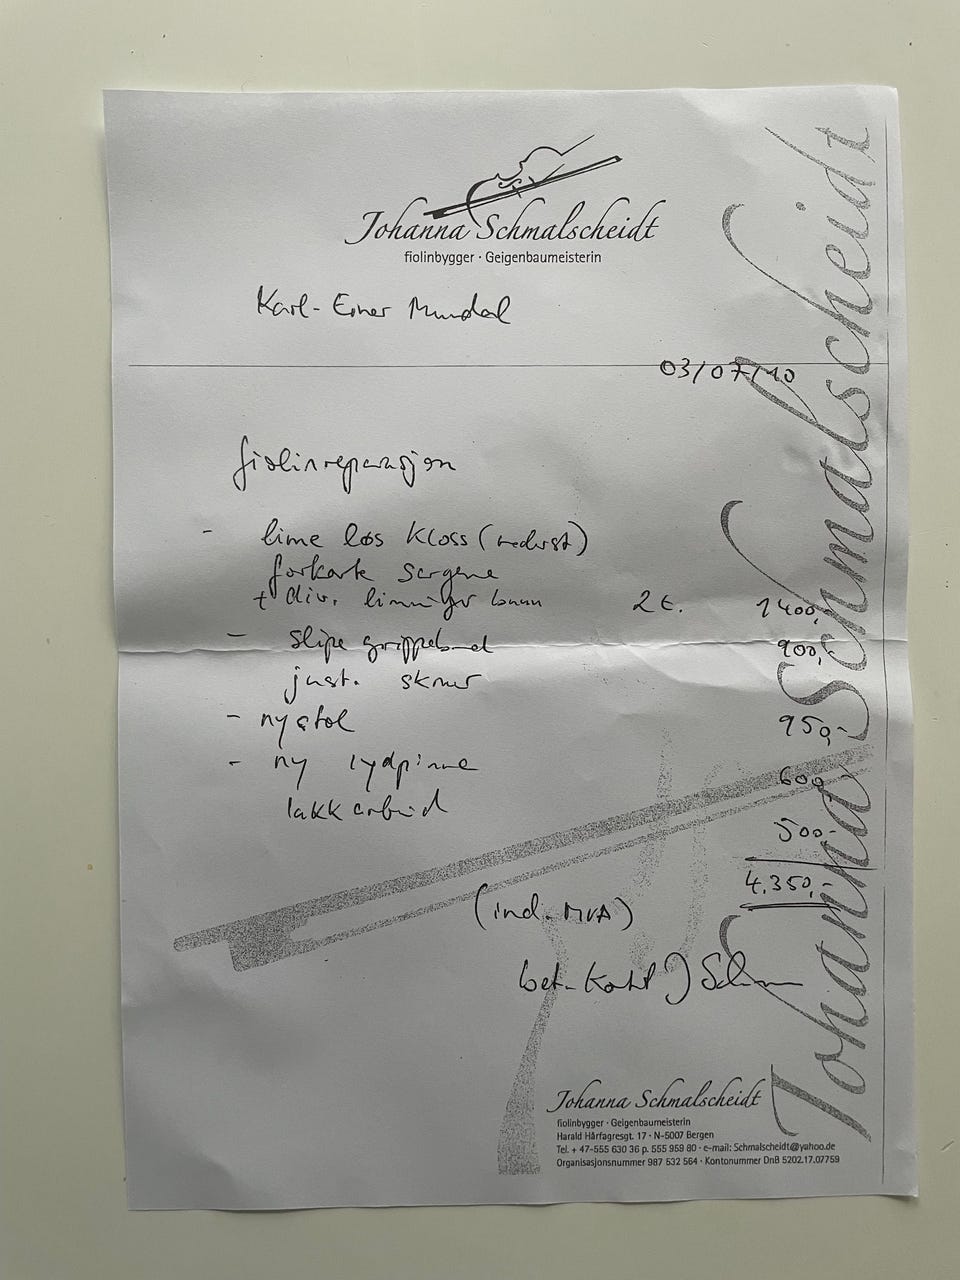 Johanna Schmalscheidt
fiolinbygger · Geigenbaumeisterin
Karl-Einer Mundal
03/07/10
fiolinreparasjon
- lime løs kloss (nederst)
forkorte sargene
+ div. liminger 2 t. 1400,-
- slipe grippebrad 900,-
just. skruer
- ny stol 950,-
- ny lydpinne 600,-
lakkarbeid 500,-
4.350,-
(incl. MVA)
bet. kont J Schm
Johanna Schmalscheidt
Johanna Schmalscheidt
fiolinbygger · Geigenbaumeisterin
Harald Hårfagresgt. 17 · N-5007 Bergen
Tel. + 47-555 630 36 p. 555 959 80 · e-mail: Schmalscheidt@yahoo.de
Organisasjonsnummer 987 532 564 · Kontonummer DnB 5202.17.07759